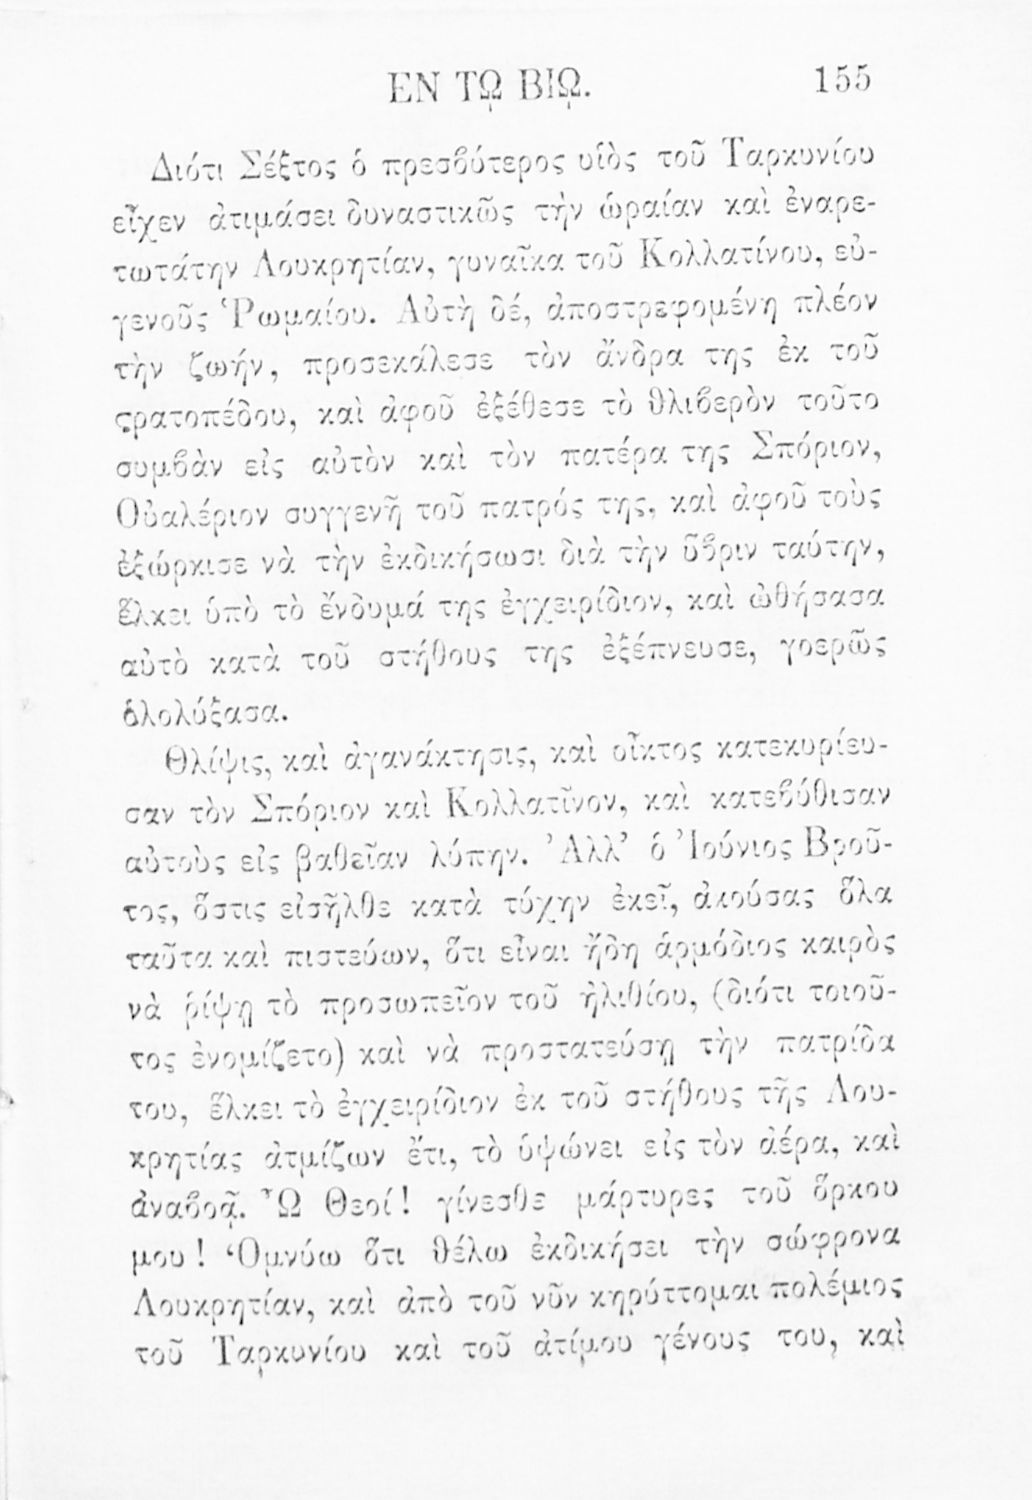 ΕΝ ΤΩ ΒΙΩ. 155
Διότι Σέξτος ὁ πρεσβύτερος υἱὸς τοῦ Ταρκυνίου
εἶχεν ἀτιμάσει δυναστικῶς τὴν ὡραίαν καὶ ἐναρε-
τωτάτην Λουκρητίαν, γυναῖκα τοῦ Κολλατίνου, εὐ-
γενοῦς Ῥωμαίου. Αὐτὴ δέ, ἀποστρεφομένη πλέον
τὴν ζωήν, προσεκάλεσε τὸν ἄνδρα της ἐκ τοῦ
ϛρατοπέδου, καὶ ἀφοῦ ἐξέθεσε τὸ θλιβερὸν τοῦτο
συμβὰν εἰς αὐτὸν καὶ τὸν πατέρα της Σπόριον,
Οὐαλέριον συγγενῆ τοῦ πατρός της, καὶ ἀφοῦ τοὺς
ἐξώρκισε νὰ τὴν ἐκδικήσωσι διὰ τὴν ὕβριν ταύτην,
ἕλκει ὑπὸ τὸ ἔνδυμά της ἐγχειρίδιον, καὶ ὠθήσασα
αὐτὸ κατὰ τοῦ στήθους της ἐξέπνευσε, γοερῶς
ὀλολύξασα.
Θλίψις, καὶ ἀγανάκτησις, καὶ οἶκτος κατεκυρίευ-
σαν τὸν Σπόριον καὶ Κολλατῖνον, καὶ κατεβύθισαν
αὐτοὺς εἰς βαθεῖαν λύπην. Ἀλλ’ ὁ Ἰούνιος Βροῦ-
τος, ὅστις εἰσῆλθε κατὰ τύχην ἐκεῖ, ἀκούσας ὅλα
ταῦτα καὶ πιστεύων, ὅτι εἶναι ἤδη ἁρμόδιος καιρὸς
νὰ ῥίψῃ τὸ προσωπεῖον τοῦ ἠλιθίου, (διότι τοιοῦ-
τος ἐνομίζετο) καὶ νὰ προστατεύσῃ τὴν πατρίδα
του, ἕλκει τὸ ἐγχειρίδιον ἐκ τοῦ στήθους τῆς Λου-
κρητίας ἀτμίζων ἔτι, τὸ ὑψώνει εἰς τὸν ἀέρα, καὶ
ἀναβοᾷ. Ὦ Θεοί! γίνεσθε μάρτυρες τοῦ ὅρκου
μου! Ὁμνύω ὅτι θέλω ἐκδικήσει τὴν σώφρονα
Λουκρητίαν, καὶ ἀπὸ τοῦ νῦν κηρύττομαι πολέμιος
τοῦ Ταρκυνίου καὶ τοῦ ἀτίμου γένους του, καὶ